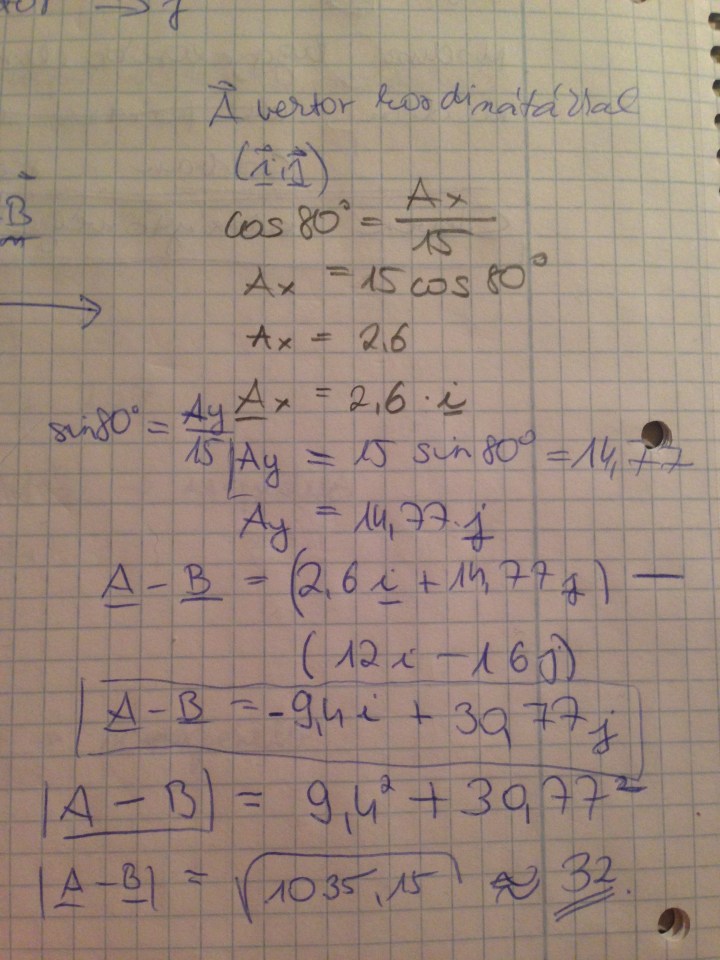 → j
A⃗ vektor koordinátáival
(i⃗, j⃗)
B
cos 80° = Ax / 15
Ax = 15 cos 80°
Ax = 2,6
Ax = 2,6 · i
sin 80° = Ay / 15
Ay = 15 sin 80° = 14,77
Ay = 14,77 · j
A - B = (2,6 i + 14,77 j) —
(12 i - 16 j)
A - B = -9,4 i + 30,77 j
|A - B| = 9,4² + 30,77²
|A - B| = √1035,15 ≈ 32.